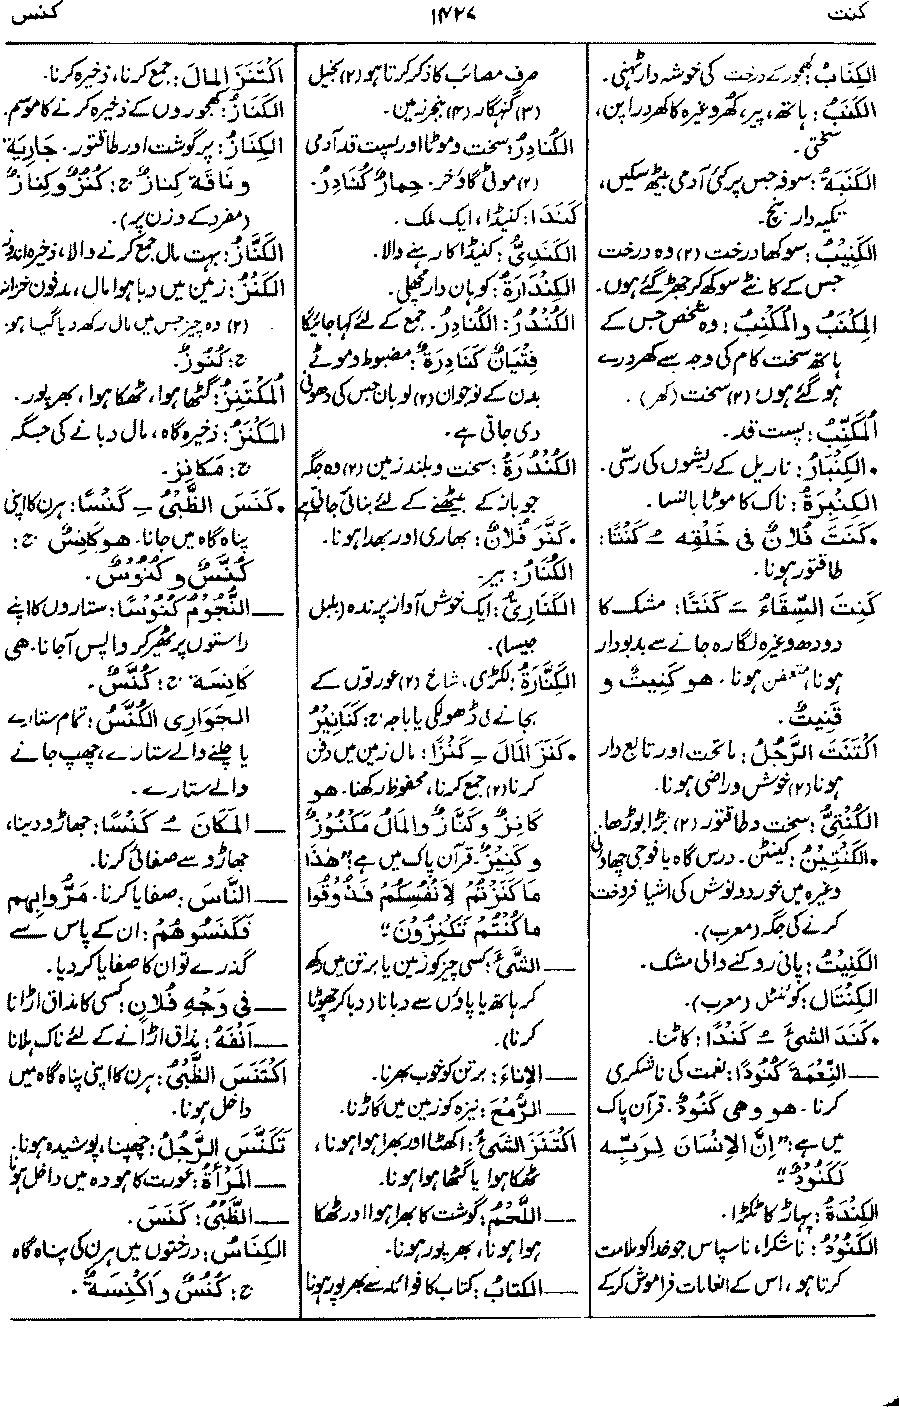 کنت
۱۴۲۷
کنس
الکِنَابُ: کھجور کے درخت کی خوشہ دار ٹہنی۔
الکَنَبُ: ہاتھ، پیر، کھُر وغیرہ کا کھردراپن،
سختی۔
الکَنَبَةُ: سوفہ جس پر کئی آدمی بیٹھ سکیں،
تکیہ دار بنچ۔
الکَنِیْبُ: سوکھا درخت (۲) وہ درخت
جس کے کانٹے سوکھ کر جھڑ گئے ہوں۔
المِکْنَبُ والمُکْنِبُ: وہ شخص جس کے
ہاتھ سخت کام کی وجہ سے کھردرے
ہوگئے ہوں (۲) سخت (کھر)۔
المُکَنِّبُ: پست قد۔
•الکِنْبَارُ: ناریل کے ریشوں کی رسّی۔
الکِنْبِرَةُ: ناک کا موٹا بانسا۔
•کَنَتَ فُلَانٌ فی خَلْقِه ـُ کَنْتًا:
طاقتور ہونا۔
کَنِتَ السِّقَاءُ ـَ کَنَتًا: مشک کا
دودھ وغیرہ لگا رہ جانے سے بدبودار
ہونا، متعفن ہونا۔ هو کَنِیتٌ و
قَنِیتٌ۔
اکْتَنَتَ الرَّجُلُ: ماتحت اور تابع دار
ہونا (۲) خوش و راضی ہونا۔
الکُنْتِیُّ: سخت و طاقتور (۲) بڑا بوڑھا۔
•الکَنْتِیْنُ: کینٹن۔ درس گاہ یا فوجی چھاؤنی
وغیرہ میں خوردونوش کی اشیا فروخت
کرنے کی جگہ (معرب)۔
الکَنِیْتُ: پانی روکنے والی مشک۔
الکِنْتَال: کوئنٹل (معرب)۔
•کَنَدَ الشیْءَ ـُ کَنْدًا: کاٹنا۔
ـــ النِّعْمَةَ کُنُودًا: نعمت کی ناشکری
کرنا۔ هو وهی کَنُودٌ۔ قرآن پاک
میں ہے: ”اِنَّ الاِنْسَانَ لِرَبِّه
لَکَنُودٌ“
الکِنْدَةُ: پہاڑ کا ٹکڑا۔
الکَنُوْدُ: ناشکرا، ناسپاس جو خدا کو ملامت
کرتا ہو، اس کے انعامات فراموش کرکے
صرف مصائب کا ذکر کرتا ہو (۲) بخیل
(۳) گنہگار (۴) بنجر زمین۔
الکُنَادِرُ: سخت و موٹا اور پست قد آدمی
(۲) موٹی گاؤخر۔ حِمارٌ کُنَادِرٌ۔
کَنَدَا: کنیڈا، ایک ملک۔
الکَنَدِیُّ: کنیڈا کا رہنے والا۔
الکِنْدَارَةُ: کوہان دار مچھلی۔
الکُنْدُرُ: الکُنَادِرُ۔ جمع کے لئے کہا جائیگا
فِتْیَانٌ کَنَادِرَةٌ: مضبوط و موٹے
بدن کے نوجوان (۲) لوبان جس کی دھونی
دی جاتی ہے۔
الکُنْدُرَةُ: سخت و بلند زمین (۲) وہ جگہ
جو باز کے بیٹھنے کے لئے بنائی جاتی ہے
•کَنَّرَ فُلَانٌ: بھاری اور بھدا ہونا۔
الکُنَارُ: بیر۔
الکَنَارِیُّ: ایک خوش آواز پرندہ (بلبل
جیسا)۔
الکِنَّارَةُ: لکڑی، شاخ (۲) عورتوں کے
بجانے کی ڈھولکی یا باجہ ج: کَنَانِیْرُ
•کَنَزَ المَالَ ـِ کَنْزًا: مال زمین میں دفن
کرنا (۲) جمع کرنا، محفوظ رکھنا۔ هو
کَانِزٌ وکَنَّازٌ والمَالُ مَکْنُوْزٌ
وکَنِیْزٌ۔ قرآن پاک میں ہے: ”هٰذَا
مَا کَنَزْتُمْ لِاَنْفُسِکُمْ فَذُوْقُوا
مَا کُنْتُمْ تَکْنِزُوْنَ“
ـــ الشیْءَ: کسی چیز کو زمین یا برتن میں رکھ
کر ہاتھ یا پاؤں سے دبانا (دبا کر چھوٹا
کرنا)۔
ـــ الاِناءَ: برتن کو خوب بھرنا۔
ـــ الرُّمْحَ: نیزہ کو زمین میں گاڑنا۔
اکْتَنَزَ الشیْءُ: اکھٹا اور بھرا ہوا ہونا،
ٹھکا ہوا یا گٹھا ہوا ہونا۔
ـــ اللَّحْمُ: گوشت کا بھرا ہوا اور ٹھکا
ہوا ہونا، بھرپور ہونا۔
ـــ الکتابُ: کتاب کا فوائد سے بھرپور ہونا
اکْتَنَزَ المالَ: جمع کرنا، ذخیرہ کرنا۔
الکَنَازُ: کھجوروں کے ذخیرہ کرنے کا موسم۔
الکِنَازُ: پر گوشت اور طاقتور۔ جَارِیَةٌ
و نَاقَةٌ کِنَازٌ ج: کُنُزٌ وکِنَازٌ
(مفرد کے وزن پر)۔
الکَنَّازُ: بہت مال جمع کرنے والا، ذخیرہ اندوز
الکَنْزُ: زمین میں دبا ہوا مال، مدفون خزانہ
(۲) وہ چیز جس میں مال رکھ دیا گیا ہو:
ج: کُنُوزٌ۔
المُکْتَنِزُ: گٹھا ہوا، ٹھکا ہوا، بھرپور۔
المَکْنَزُ: ذخیرہ گاہ، مال دبانے کی جگہ
ج: مَکَانِزُ۔
•کَنَسَ الظَّبْیُ ـِ کَنْسًا: ہرن کا اپنی
پناہ گاہ میں جانا۔ هو کَانِسٌ ج:
کُنَّسٌ و کُنُوْسٌ۔
ـــ النُّجُوْمُ کُنُوْسًا: ستاروں کا اپنے
راستوں پر ٹھہر کر واپس آجانا۔ هی
کَانِسَةٌ ج: کُنَّسٌ۔
الجَوَارِی الکُنَّسُ: تمام ستارے
یا چلنے والے ستارے، چھپ جانے
والے ستارے۔
ـــ المَکَانَ ـُ کَنْسًا: جھاڑو دینا،
جھاڑو سے صفائی کرنا۔
ـــ النَّاسَ: صفایا کرنا۔ مَرُّوا بِهِم
فَکَنَسُوهُمْ: ان کے پاس سے
گذرے تو ان کا صفایا کر دیا۔
ـــ فی وَجْهِ فُلَانٍ: کسی کا مذاق اڑانا
ـــ اَنْفَهُ: مذاق اڑانے کے لئے ناک ہلانا
اکْتَنَسَ الظَّبْیُ: ہرن کا اپنی پناہ گاہ میں
داخل ہونا۔
تَکَنَّسَ الرَّجُلُ: چھپنا، پوشیدہ ہونا۔
ـــ المَرْأَةُ: عورت کا ہودہ میں داخل ہونا
ـــ الظَّبْیُ: کَنَسَ۔
الکِنَاسُ: درختوں میں ہرن کی پناہ گاہ
ج: کُنُسٌ و اَکْنِسَةٌ۔